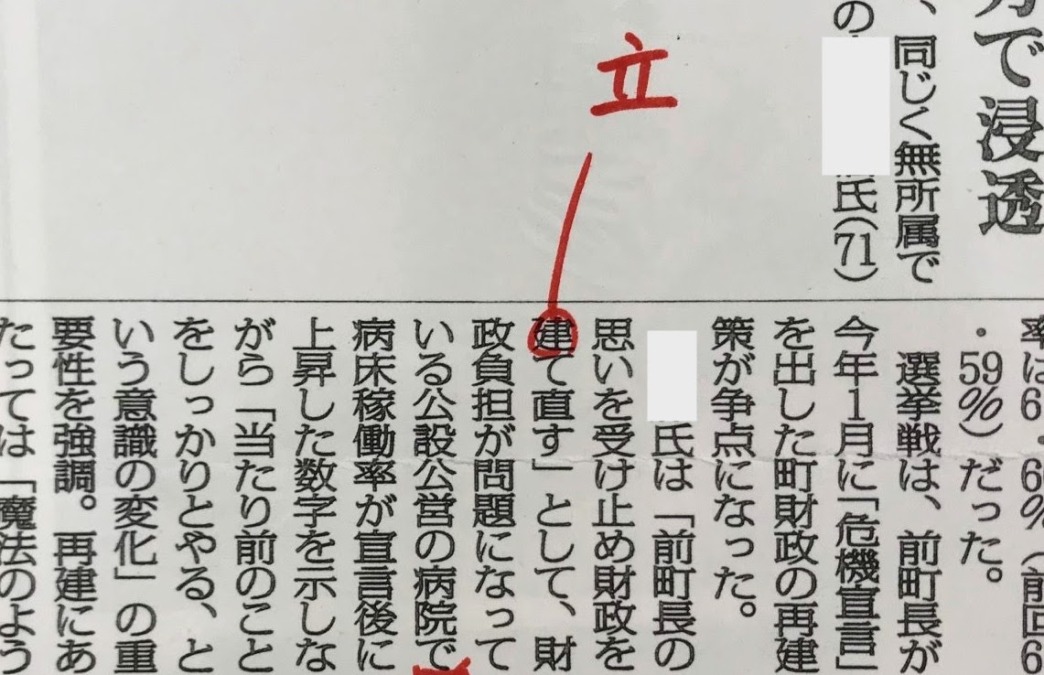 で浸透
、同じく無所属で
の
氏(71)
立
率は
(前回
・59%)だった。
選挙戦は、前町長が
今年1月に「危機宣言」
を出した町財政の再建
策が争点になった。
氏は「前町長の
思いを受け止め財政を
建て直す」として、財
政負担が問題になって
いる公設公営の病院で
病床稼働率が宣言後に
上昇した数字を示しな
がら「当たり前のこと
をしっかりとやる、と
いう意識の変化」の重
要性を強調。再建にあ
たっては「魔法のよう